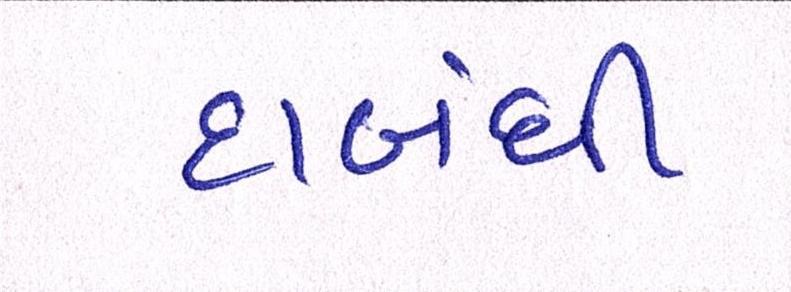 દાબંધી